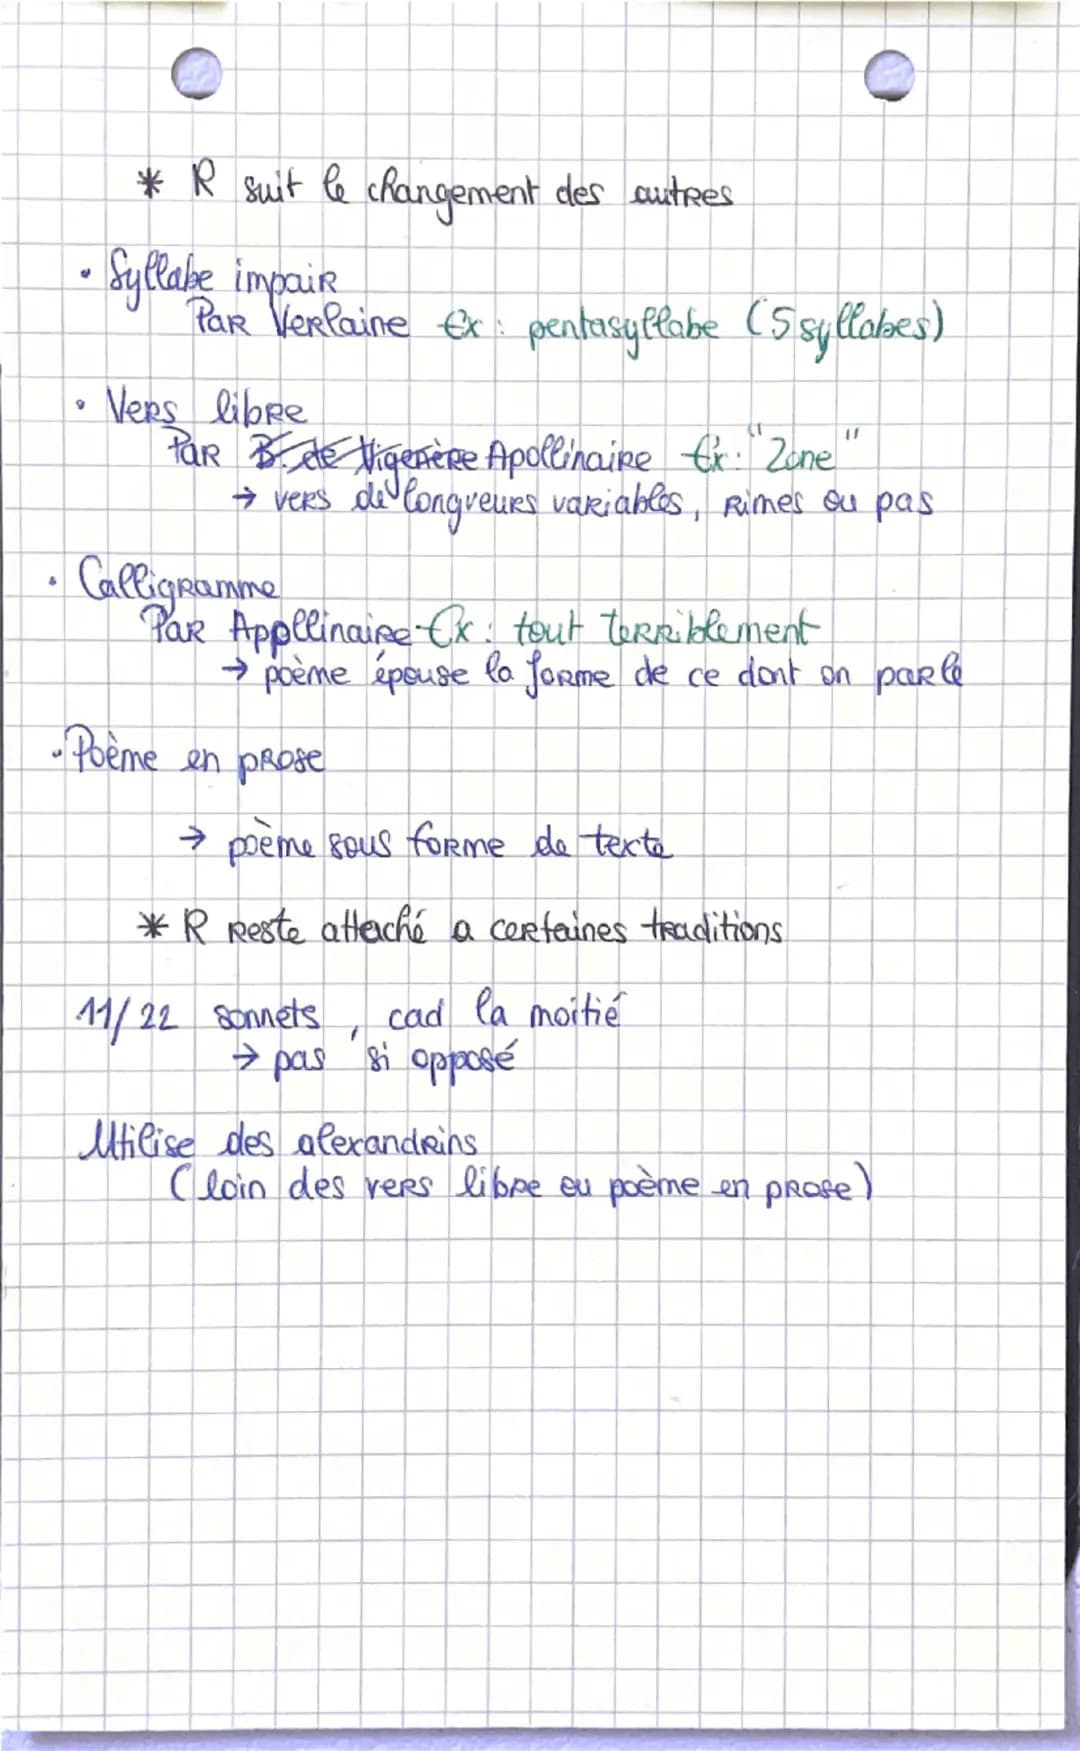 * R suit le changement des autres
• Syllabe impair
Par Verlaine Ex : pentasyllabe (5 syllabes)
• Vers libre
Par B. de Vigenère Apollinaire Ex : "Zone"
→ vers de longueurs variables, rimes ou pas
• Calligramme
Par Appllinaire Ex : tout terriblement
→ poème épouse la forme de ce dont on parle
• Poème en prose
→ poème sous forme de texte
* R reste attaché a certaines traditions
11/22 sonnets, cad la moitié
→ pas si opposé
Utilise des alexandrins
(loin des vers libre ou poème en prose)